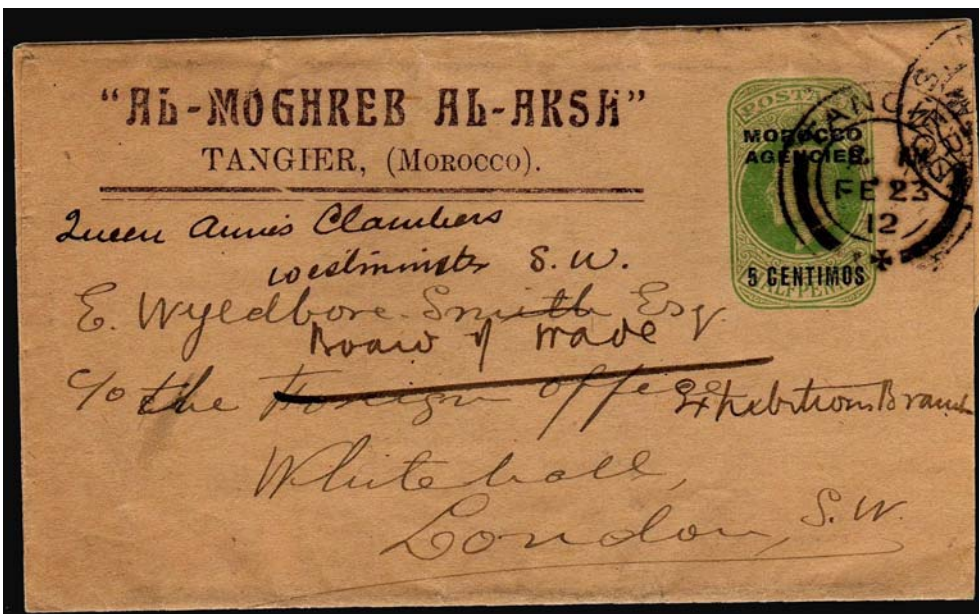 "AL-MOGHREB AL-AKSA"
TANGIER, (MOROCCO).
POSTAGE
MOROCCO
AGENCIES
5 CENTIMOS
HALFPENNY
FE 23
12
Queen Annes Chambers
Westminster S.W.
E. Wyldbore-Smith Esq.
Board of Trade
c/o the Foreign Office
Exhibitions Branch
Whitehall,
London, S.W.